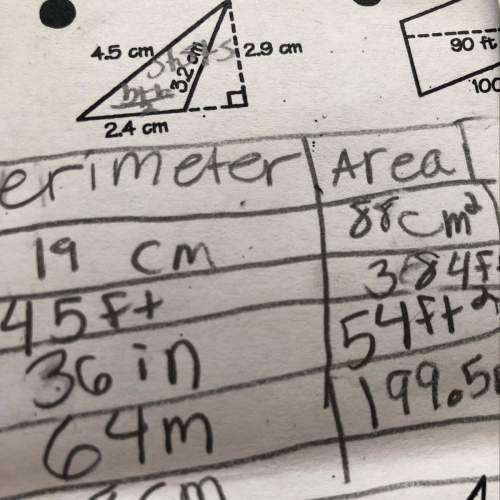 4.5 cm
3.2 cm
2.9 cm
90 ft
100
2.4 cm
erimeter Area
19 cm 88cm²
45ft 384f
36 in 54ft²
64m 199.5
cm